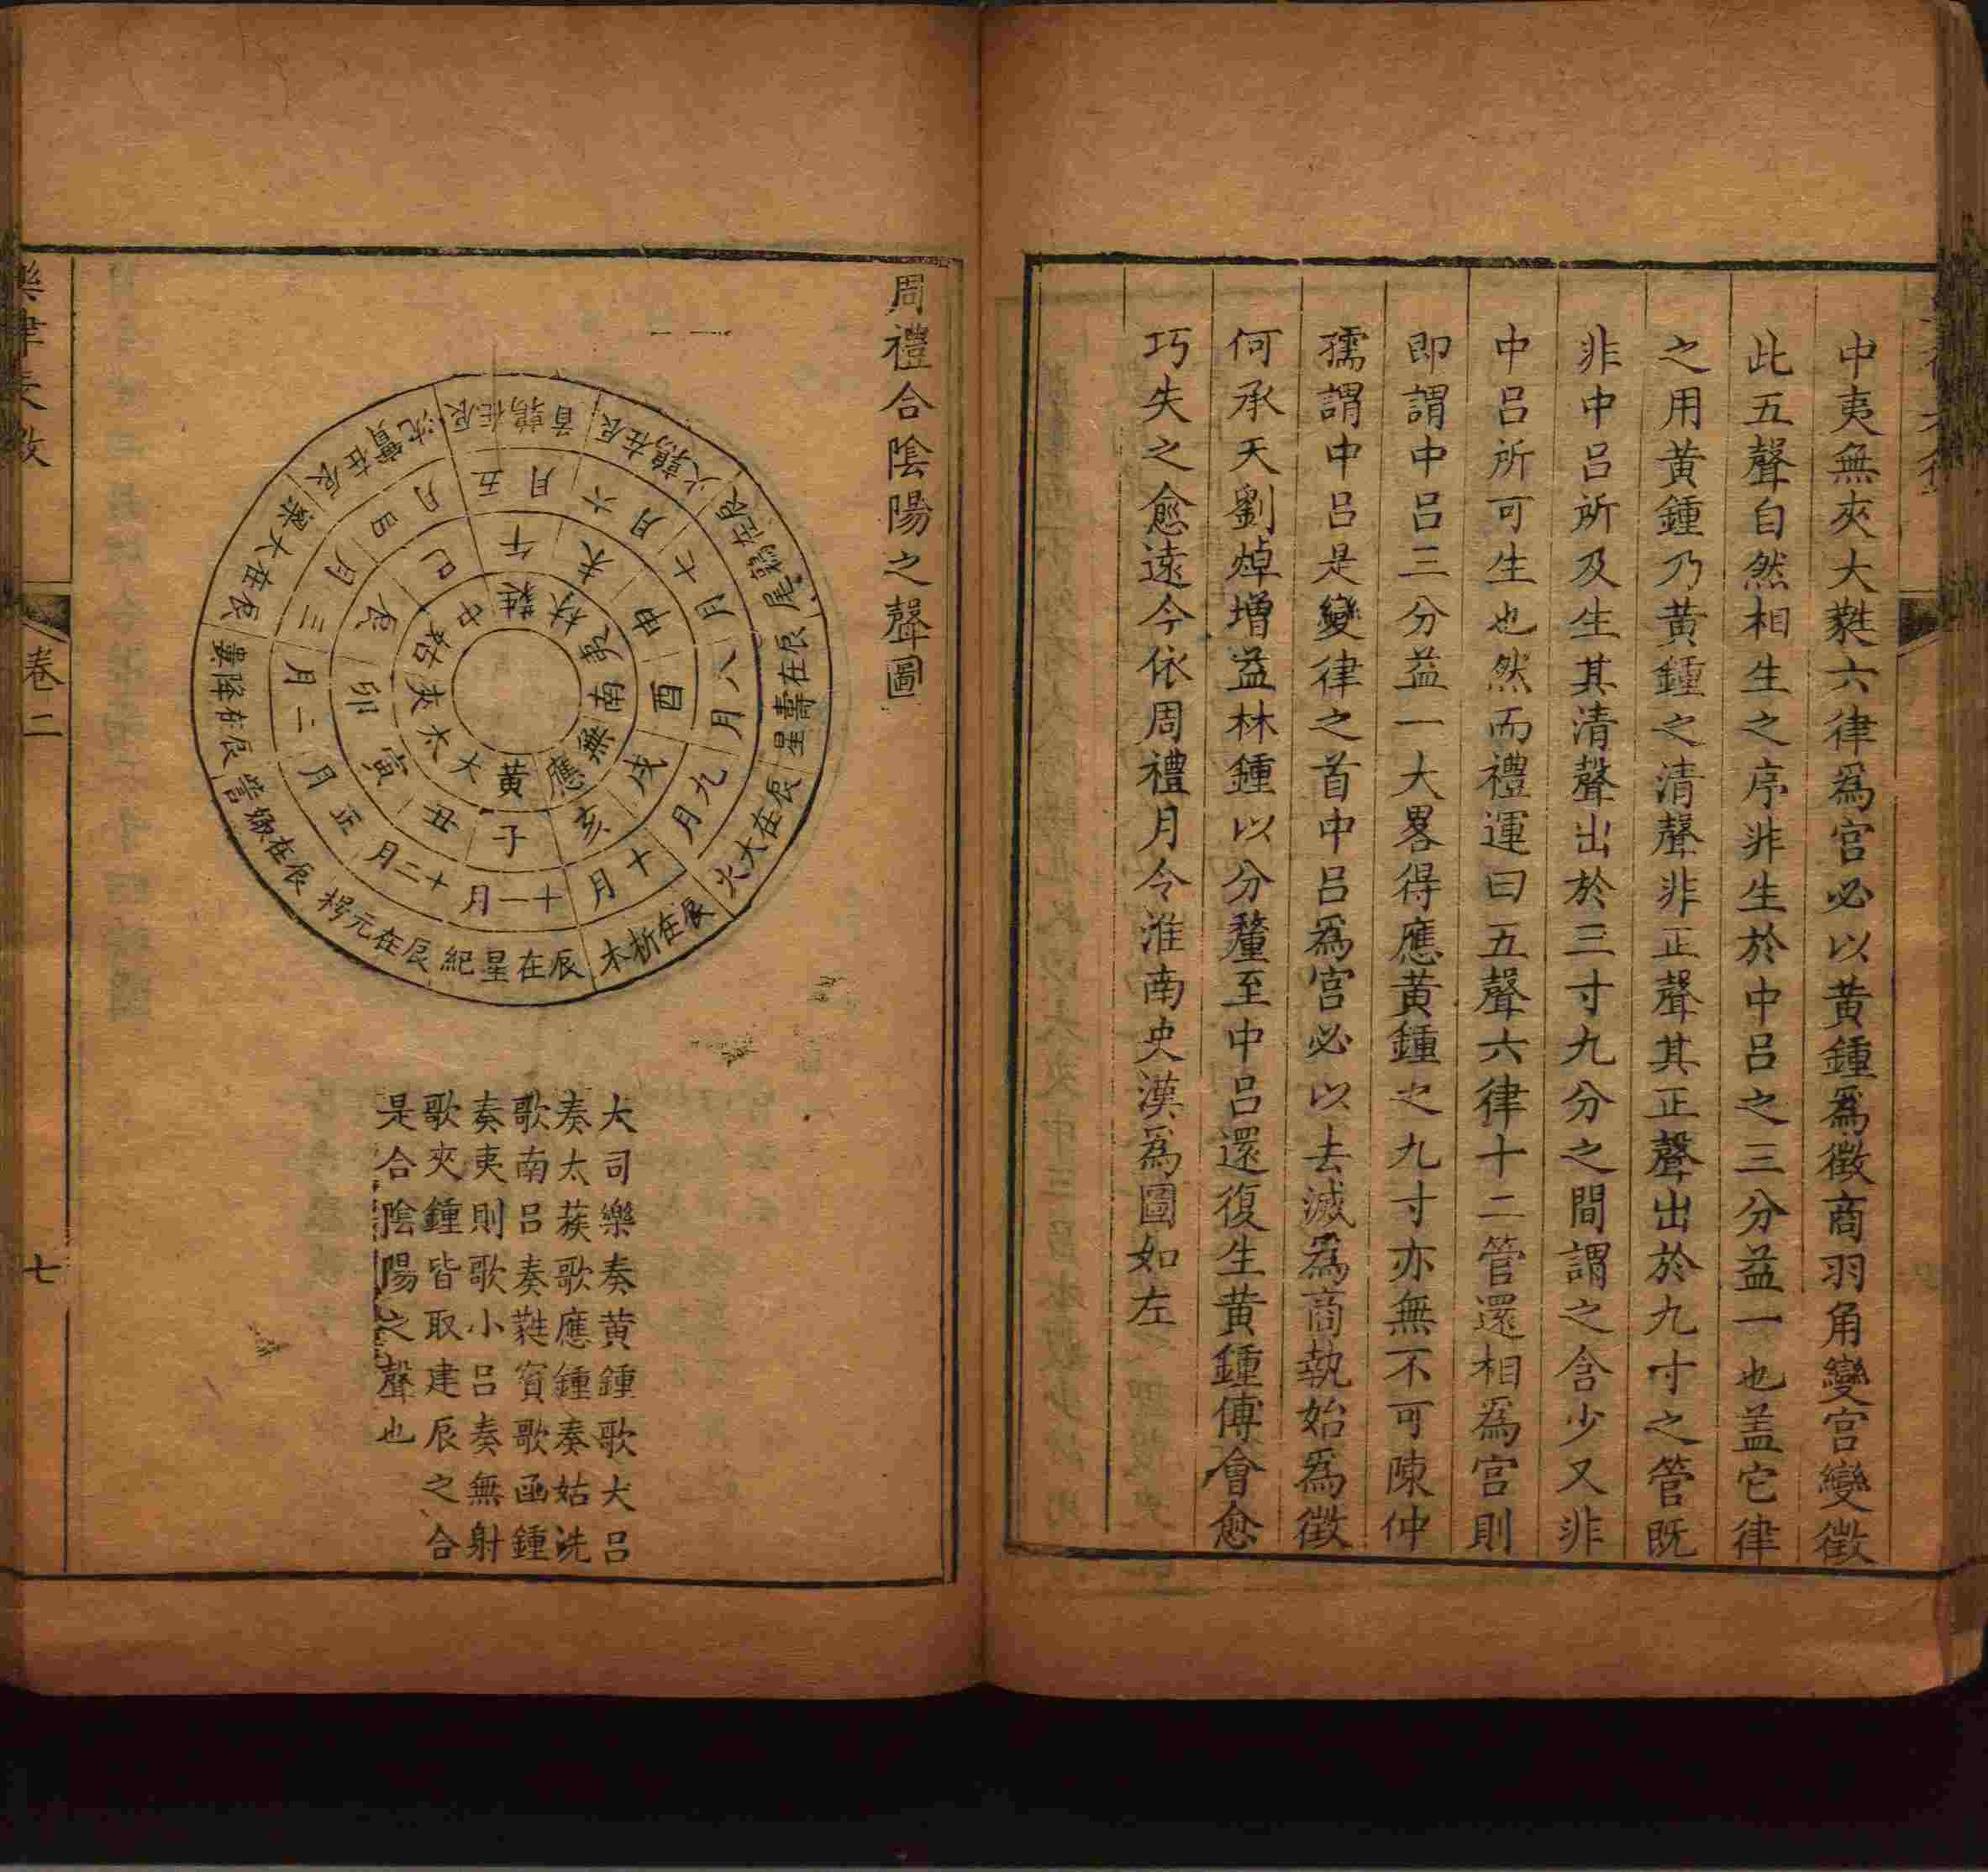 中夷無夾大蕤六律爲宮必以黃鍾爲徵商羽角變宮變徵
此五聲自然相生之序非生於中呂之三分益一也盖它律
之用黃鍾乃黃鍾之清聲非正聲其正聲出於九寸之管旣
非中呂所及生其清聲出於三寸九分之間謂之含少又非
中呂所可生也然而禮運曰五聲六律十二管還相爲宮則
即謂中呂三分益一大畧得應黃鍾之九寸亦無不可陳仲
孺謂中呂是變律之首中呂爲宮必以去滅爲商執始爲徵
何承天劉焯增益林鍾以分釐至中呂還復生黃鍾傅會愈
巧失之愈遠今依周禮月令淮南史漢爲圖如左
周禮合陰陽之聲圖
辰在星紀
辰在元枵
辰在娵訾
辰在降婁
辰在大梁
辰在實沈
辰在鶉首
辰在鶉火
辰在鶉尾
辰在壽星
辰在大火
辰在析木
十一月
十二月
正月
二月
三月
四月
五月
六月
七月
八月
九月
十月
子
丑
寅
卯
辰
巳
午
未
申
酉
戌
亥
黃
大
太
夾
姑
中
蕤
林
夷
南
無
應
大司樂奏黃鍾歌大呂
奏太蔟歌應鍾奏姑洗
歌南呂奏蕤賓歌函鍾
奏夷則歌小呂奏無射
歌夾鍾皆取建辰之合
是合陰陽之聲也
卷二
七